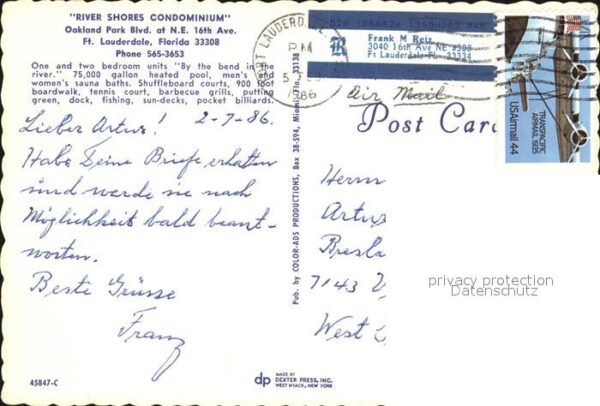 "RIVER SHORES CONDOMINIUM"
Oakland Park Blvd. at N.E. 16th Ave.
Ft. Lauderdale, Florida 33308
Phone 565-3653
One and two bedroom units "By the bend in the
river.." 75,000 gallon heated pool, men's and
women's sauna baths. Shuffleboard courts, 900 foot
boardwalk, tennis court, barbecue grills, putting
green, dock, fishing, sun-decks, pocket billiards.
Lieber Artur! 2-7-86.
Habe Deine Briefe erhalten
und werde sie nach
Möglichkeit bald beant-
worten.
Beste Grüsse
Franz
45847-C
Pub. by COLOR-ADS PRODUCTIONS, Box 38-594, Miami, Fla. 33138
dp MADE BY
DEXTER PRESS, INC.
WEST NYACK, NEW YORK
FORT LAUDERDALE
PM
1986
R
Frank M Reiz
3040 16th Ave NE #308
Ft Lauderdale FL 33334
Air Mail
Post Car
TRANSPACIFIC
AIRMAIL 1935
USAirmail 44
Herrn
Artur
Bresla
7143
West
privacy protection
Datenschutz